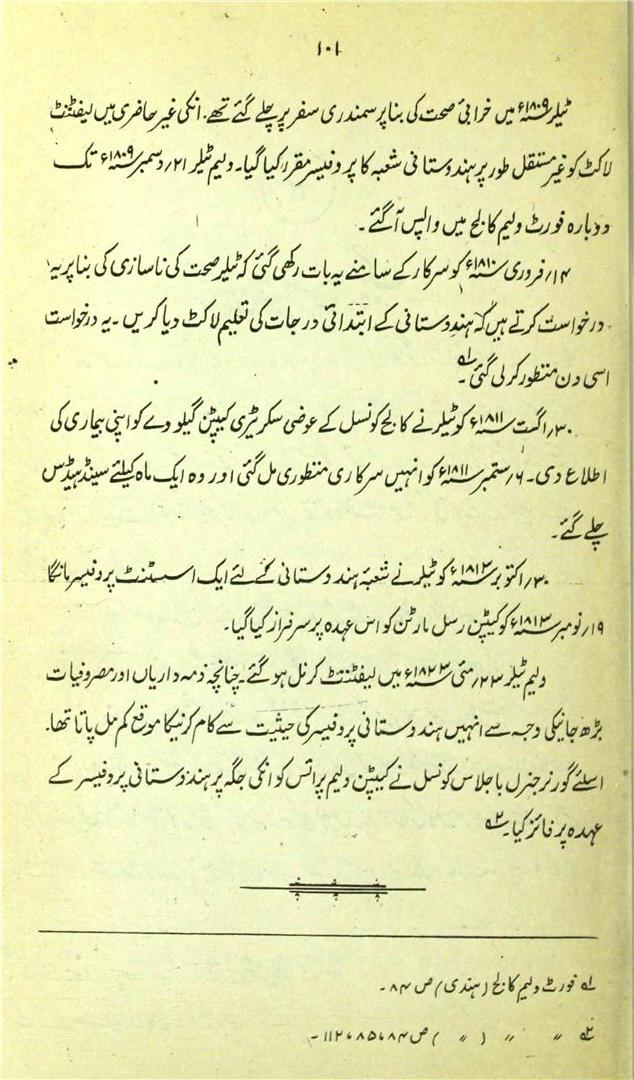 ۱۰۱
ٹیلر ۱۸۰۹ء میں خرابیٔ صحت کی بنا پر سمندری سفر پر چلے گئے تھے۔ انکی غیر حاضری میں لیفٹننٹ
لاکٹ کو غیر مستقل طور پر ہندوستانی شعبہ کا پروفیسر مقرر کیا گیا۔ ولیم ٹیلر ۲۱؍ دسمبر ۱۸۰۹ء تک
دوبارہ فورٹ ولیم کالج میں واپس آ گئے۔
۱۴؍ فروری ۱۸۱۰ء کو سرکار کے سامنے یہ بات رکھی گئی کہ ٹیلر صحت کی ناسازی کی بنا پر یہ
درخواست کرتے ہیں کہ ہندوستانی کے ابتدائی درجات کی تعلیم لاکٹ دیا کریں۔ یہ درخواست
اسی دن منظور کر لی گئی۔ ۱ے
۳۰؍ اگست ۱۸۱۱ء کو ٹیلر نے کالج کونسل کے عوضی سکرٹیری کیپٹن گیلووے کو اپنی بیماری کی
اطلاع دی۔ ۶؍ ستمبر ۱۸۱۱ء کو انہیں سرکاری منظوری مل گئی اور وہ ایک ماہ کیلئے سینڈ ہیڈس
چلے گئے۔
۳۰؍ اکتوبر ۱۸۱۳ء کو ٹیلر نے شعبۂ ہندوستانی کے لئے ایک اسسٹنٹ پروفیسر مانگا
۱۹؍ نومبر ۱۸۱۳ء کو کیپٹن رسل مارٹن کو اس عہدہ پر سرفراز کیا گیا۔
ولیم ٹیلر ۲۳؍ مئی ۱۸۲۳ء میں لیفٹننٹ کرنل ہو گئے۔ چنانچہ ذمہ داریاں اور مصروفیات
بڑھ جانیکی وجہ سے انہیں ہندوستانی پروفیسر کی حیثیت سے کام کرنیکا موقع کم مل پاتا تھا۔
اسلئے گورنر جنرل با جلاس کونسل نے کیپٹن ولیم پرائس کو انکی جگہ پر ہندوستانی پروفیسر کے
عہدہ پر فائز کیا۔ ۲ے
۱ے فورٹ ولیم کالج (ہندی) ص ۸۴۔
۲ے 〃 〃 〃 (〃) ص ۸۴، ۸۵، ۱۱۲۔